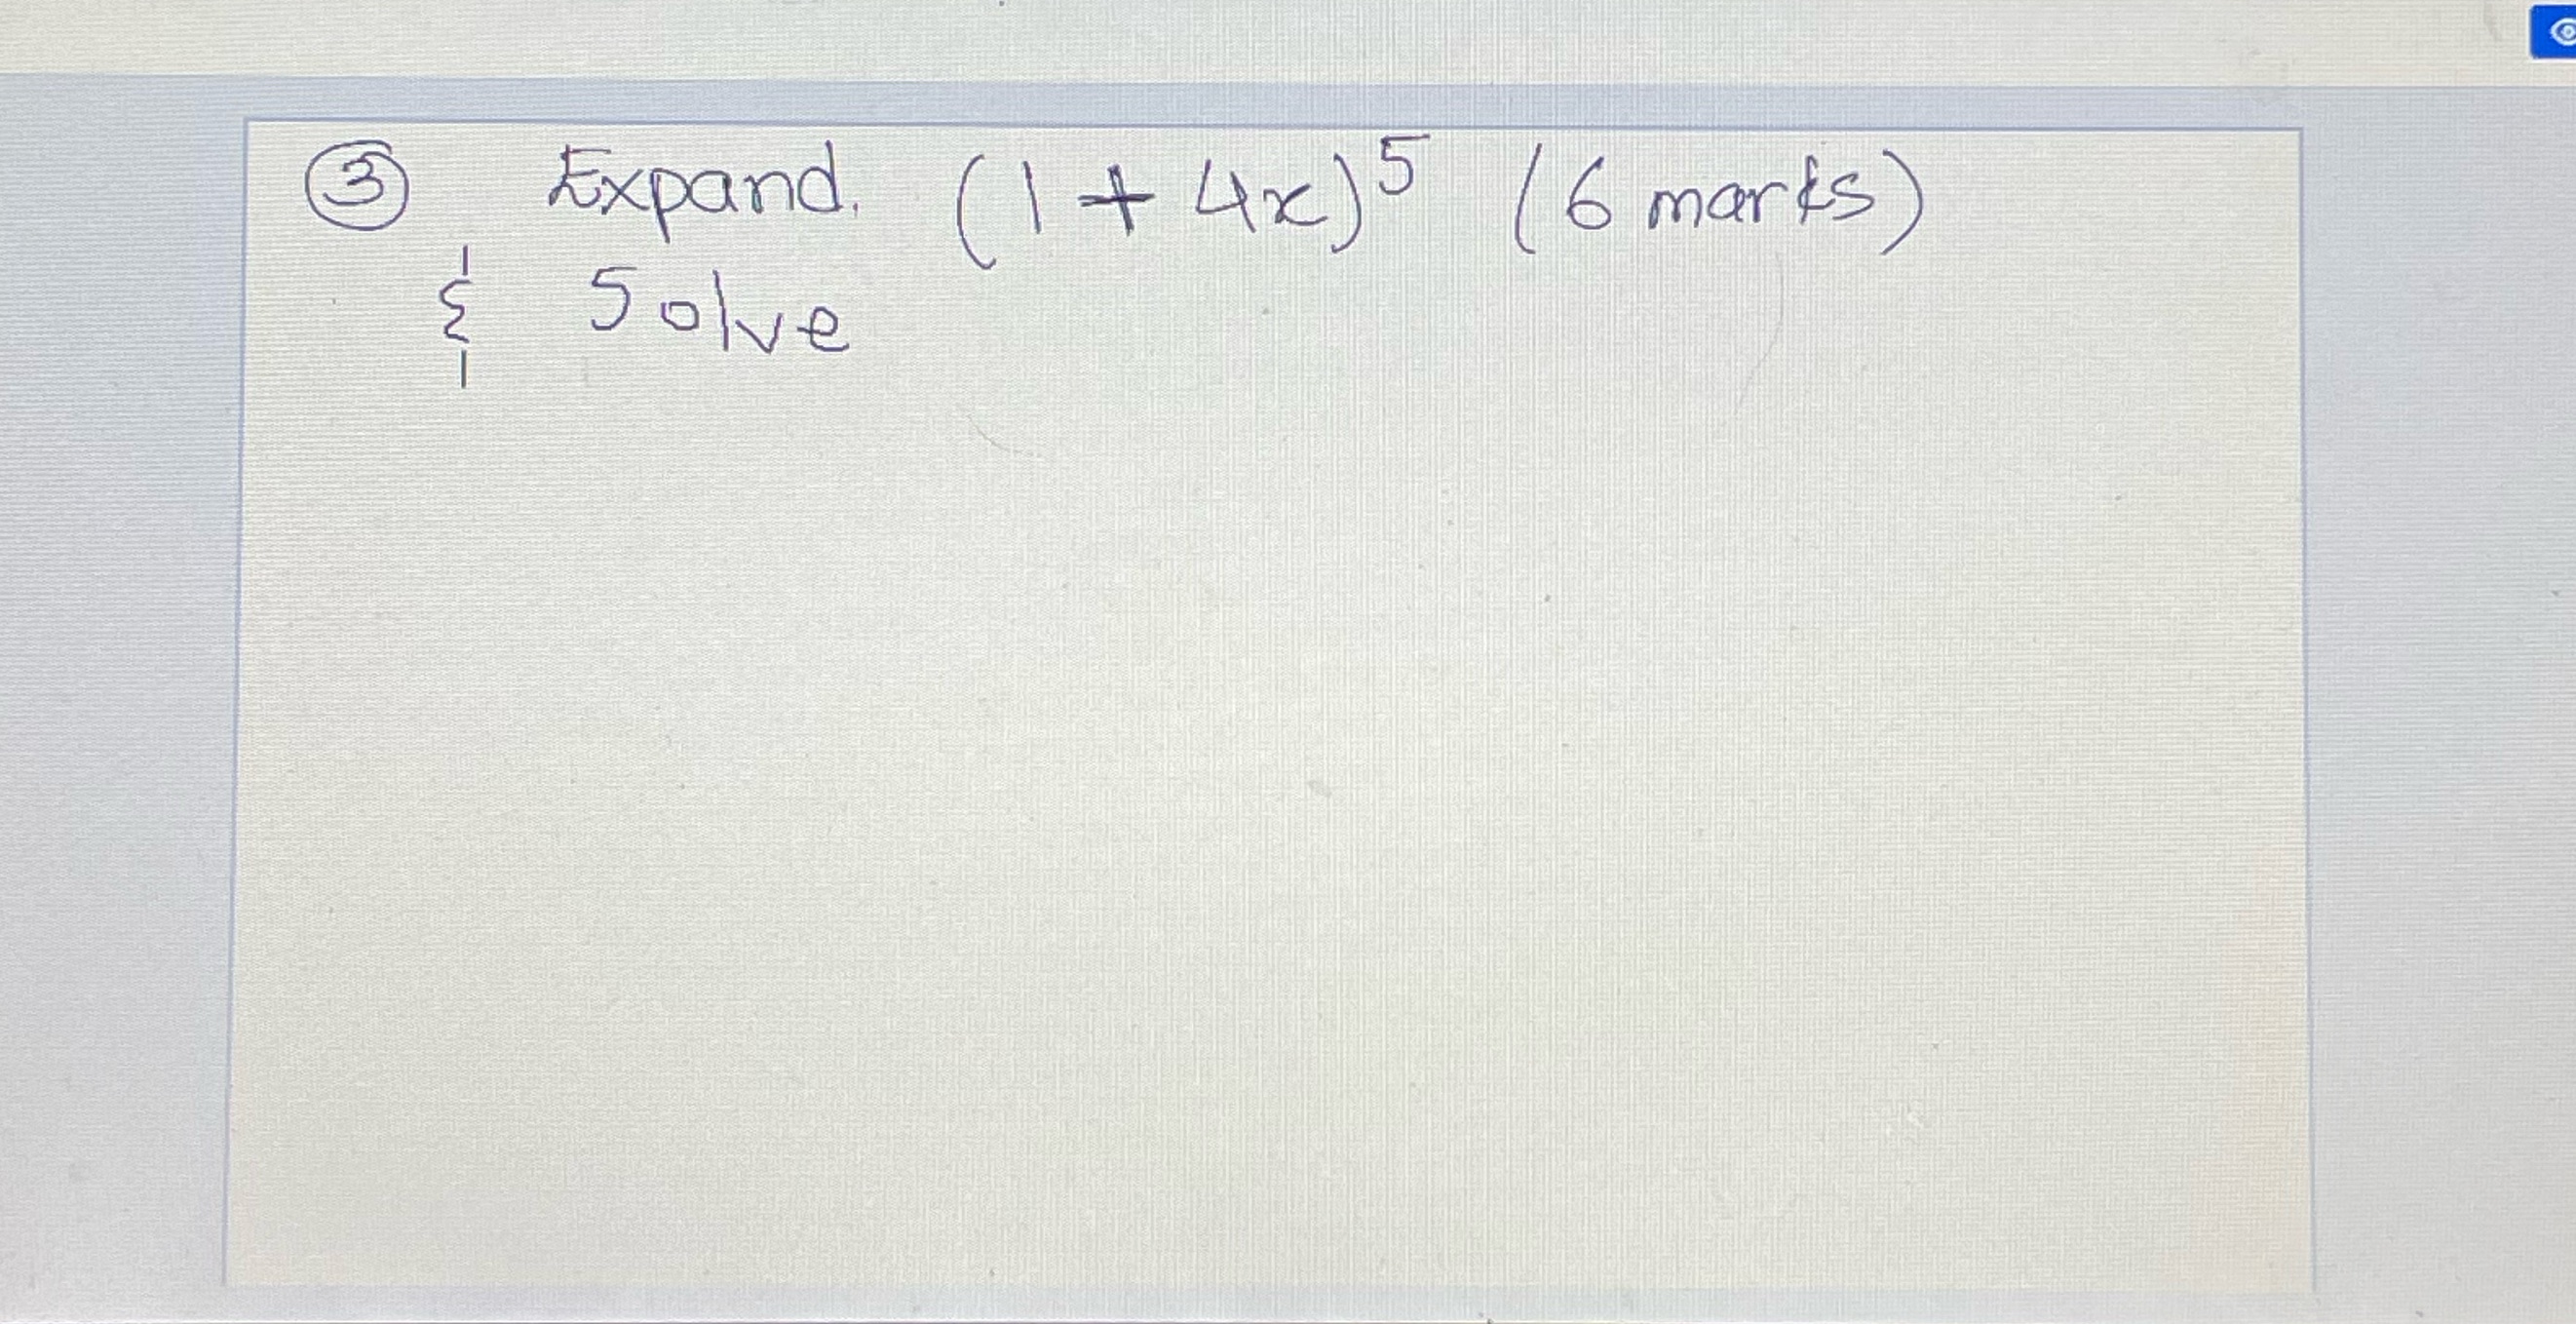 ③ Expand. (1 + 4x)⁵ (6 marks)
& Solve